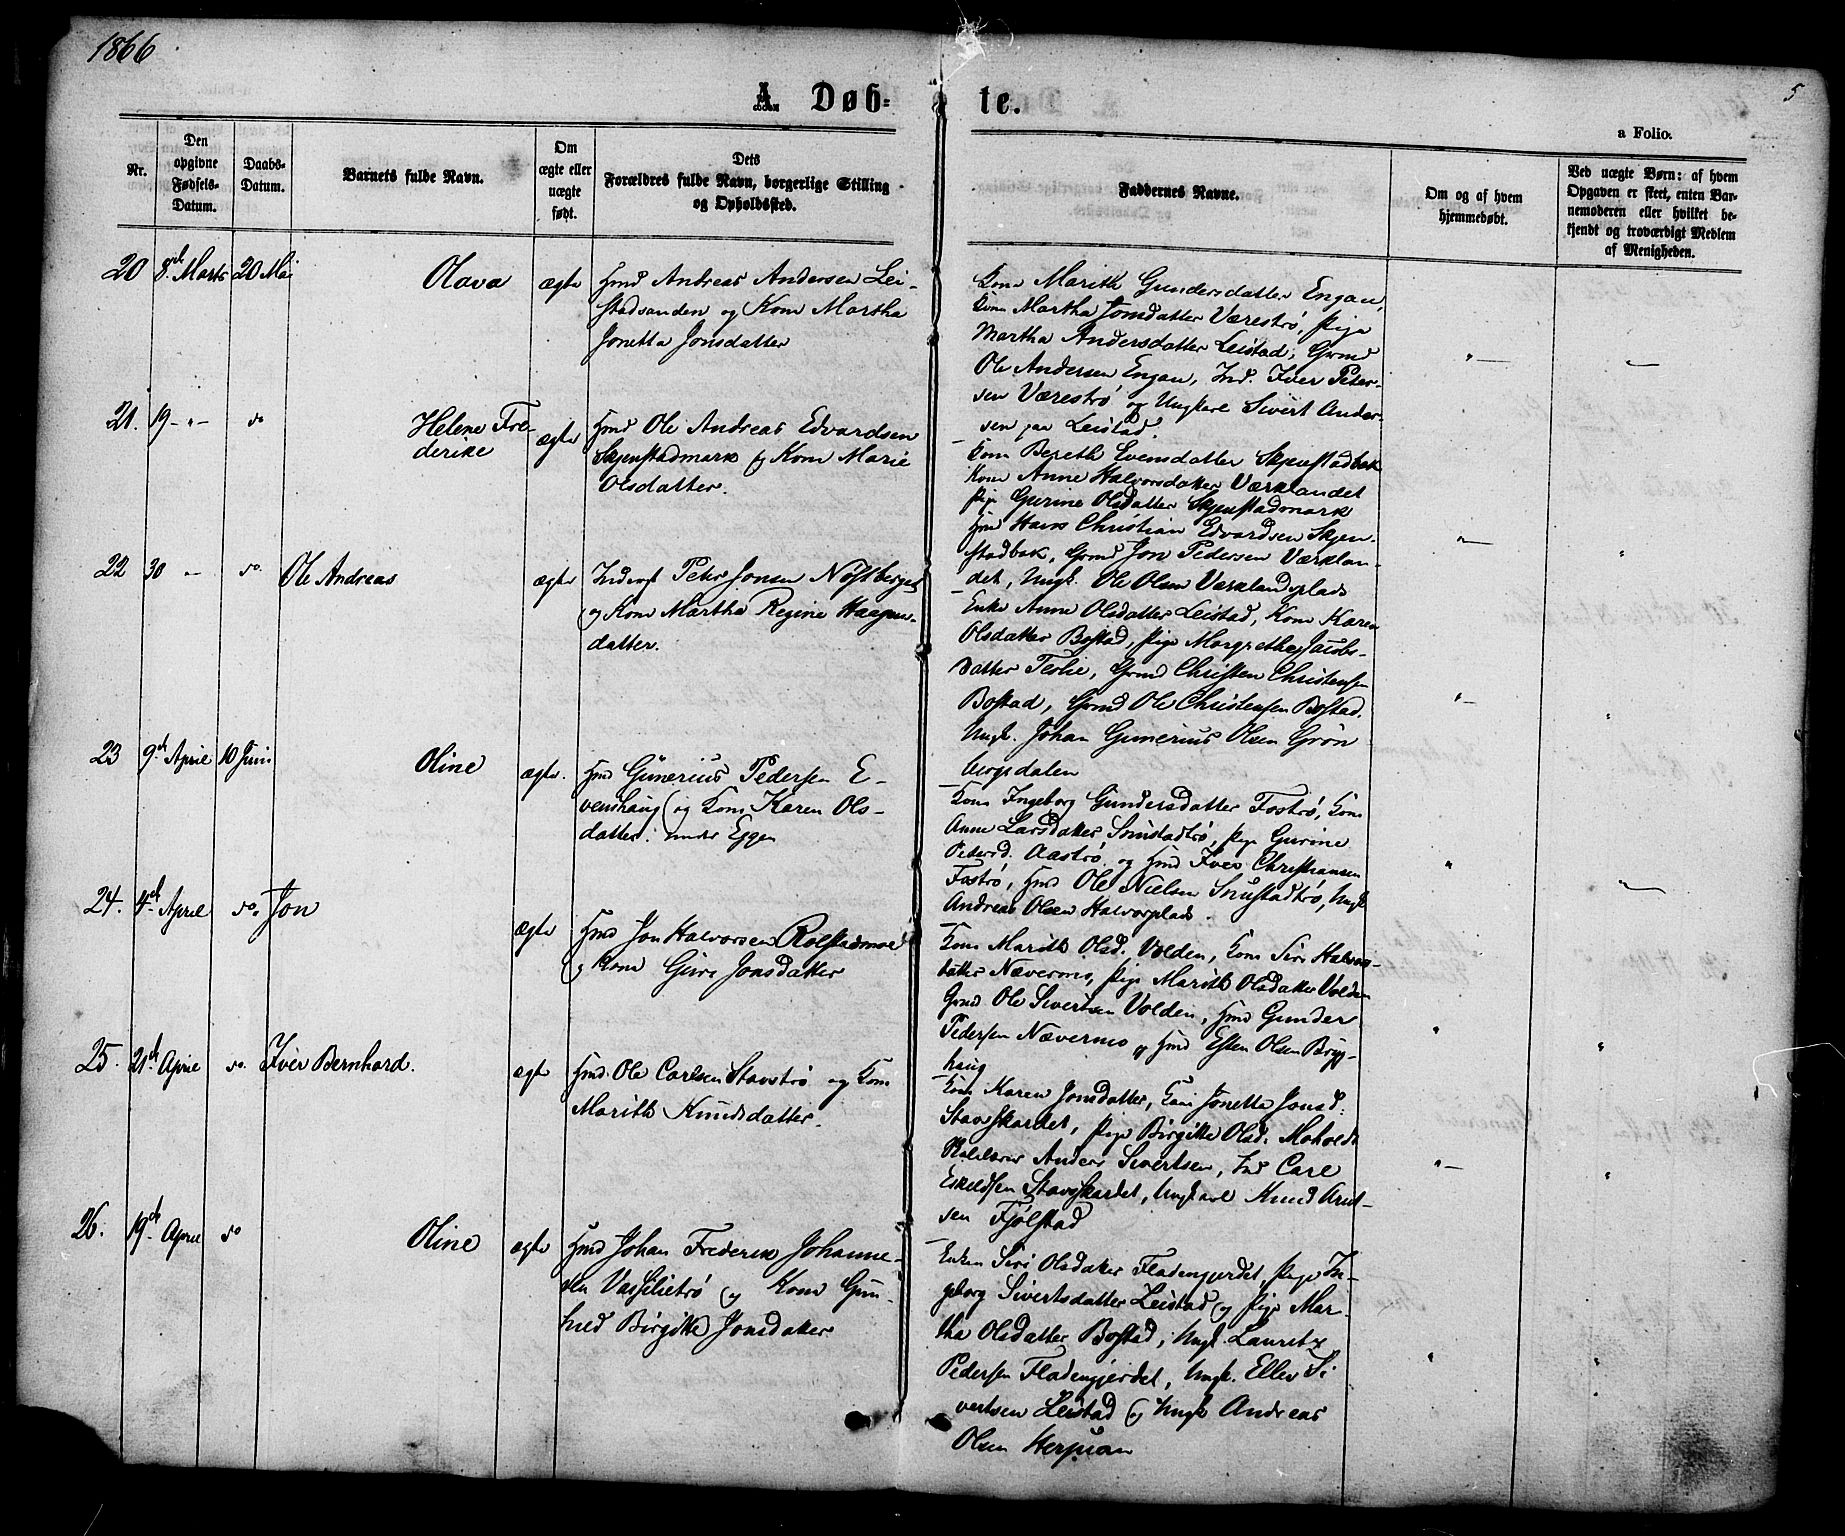 1866
5
A. Døb-te.
a Folio.
Nr.
Den opgivne Fødsels-Datum.
Daabs-Datum.
Barnets fulde Navn.
Om ægte eller uægte født.
Dets Forældres fulde Navn, borgerlige Stilling og Opholdssted.
Faddernes Navne.
Om og af hvem hjemmedøbt.
Ved uægte Børn: af hvem Opgaven er skeet, enten Barnemoderen eller hvilket bekjendt og troværdigt Medlem af Menigheden.
20 8de Marts 20 Mai Olava ægte
Hmd Andreas Andersen Lei-
stadsanden og Kone Martha
Jonetta Jonsdatter
Kone Marith Gundersdatter Engan,
Kone Martha Jonsdatter Værestrø, Pige
Martha Andersdatter Leistad, Grmd
Ole Andersen Engan, Ind. Iver Peter-
sen Værestrø og Ungkare Sivert Ander-
sen paa Leistad.
21. 19 -"- do Helene Fre-
derike ægte
Hmd Ole Andreas Edvardsen
Skjenstadmark og Kone Marie
Olsdatter.
Kone Bereth Evensdatter Skjenstadbak
Kone Anne Halvorsdatter Værklandet
Pige Gurine Olsdatter Skjenstadmark
Hmd Hans Christian Edvardsen Skjen-
stadbak, Grmd Jon Pedersen Værklan-
det, Ungk. Ole Olsen Værklandsplads
22 30 - do. Ole Andreas ægte
Peter Jonsen Nøstberget
og Kone Martha Regine Haagen-
datter.
Enke Anne Olsdatter Leistad, Kone Karen
Olsdatter Bostad, Pige Margrethe Jacobs-
datter Teslie, Grmd Christen Christensen
Bostad, Grmd Ole Christensen Bostad,
Ungk. Johan Gunerius Olsen Grøn
bergsdalen
23 9de April 10 Juni Oline ægte.
Hmd Günerius Pedersen E-
venshaug og Kone Karen Ols-
datter. under Eggen
Kone Ingeborg Gundersdatter Fostrø, Kone
Anne Larsdatter Snustadtrø, Pige Gurine
Petersd. Aastrø og Hmd Iver Christiansen
Fostrø, Hmd Ole Nielsen Snustadtrø, Ungk
Andreas Olsen Halvorplads.
24. 4de April do. Jon ægte
Hmd Jon Halvorsen Rolstadmoe
og Kone Guru Jonsdatter
Kone Marith Olsd. Volden, Kone Siri Halvors-
datter Nævermo, Pige Marith Olsdatter Volden
Grmd Ole Sivertsen Volden, Hmd Gunder
Pedersen Nævermo og Hmd Esten Olsen Bryg-
haug
25. 21de April do. Iver Bernhard. ægte
Hmd. Ole Carlsen Stavstrø og Kone
Marith Knudsdatter.
Kone Karen Jonsdatter, Kone Jonetta Jonsd.
Stavskardet, Pige Birgitte Olsd. Moholdt
Anders Sivertsen, Ind Carl
Eskildsen Stavskardet, Ungkarl Knud Arnt-
sen Fjølstad
26. 19de April do Oline ægte
Hmd Johan Frederik Johanne-
sen Vasslietrø og Kone Gun-
hild Birgitte Jonsdatter
Enken Siri Olsdatter Fladengjerdet, Pige In-
geborg Sivertsdatter Leistad og Pige Mar-
tha Olsdatter Bostad, Ungk. Lauritz
Pedersen Fladengjerdet, Ungk. Ellev Si
vertsen Leistad og Ungk Andreas
Olsen Herjuan